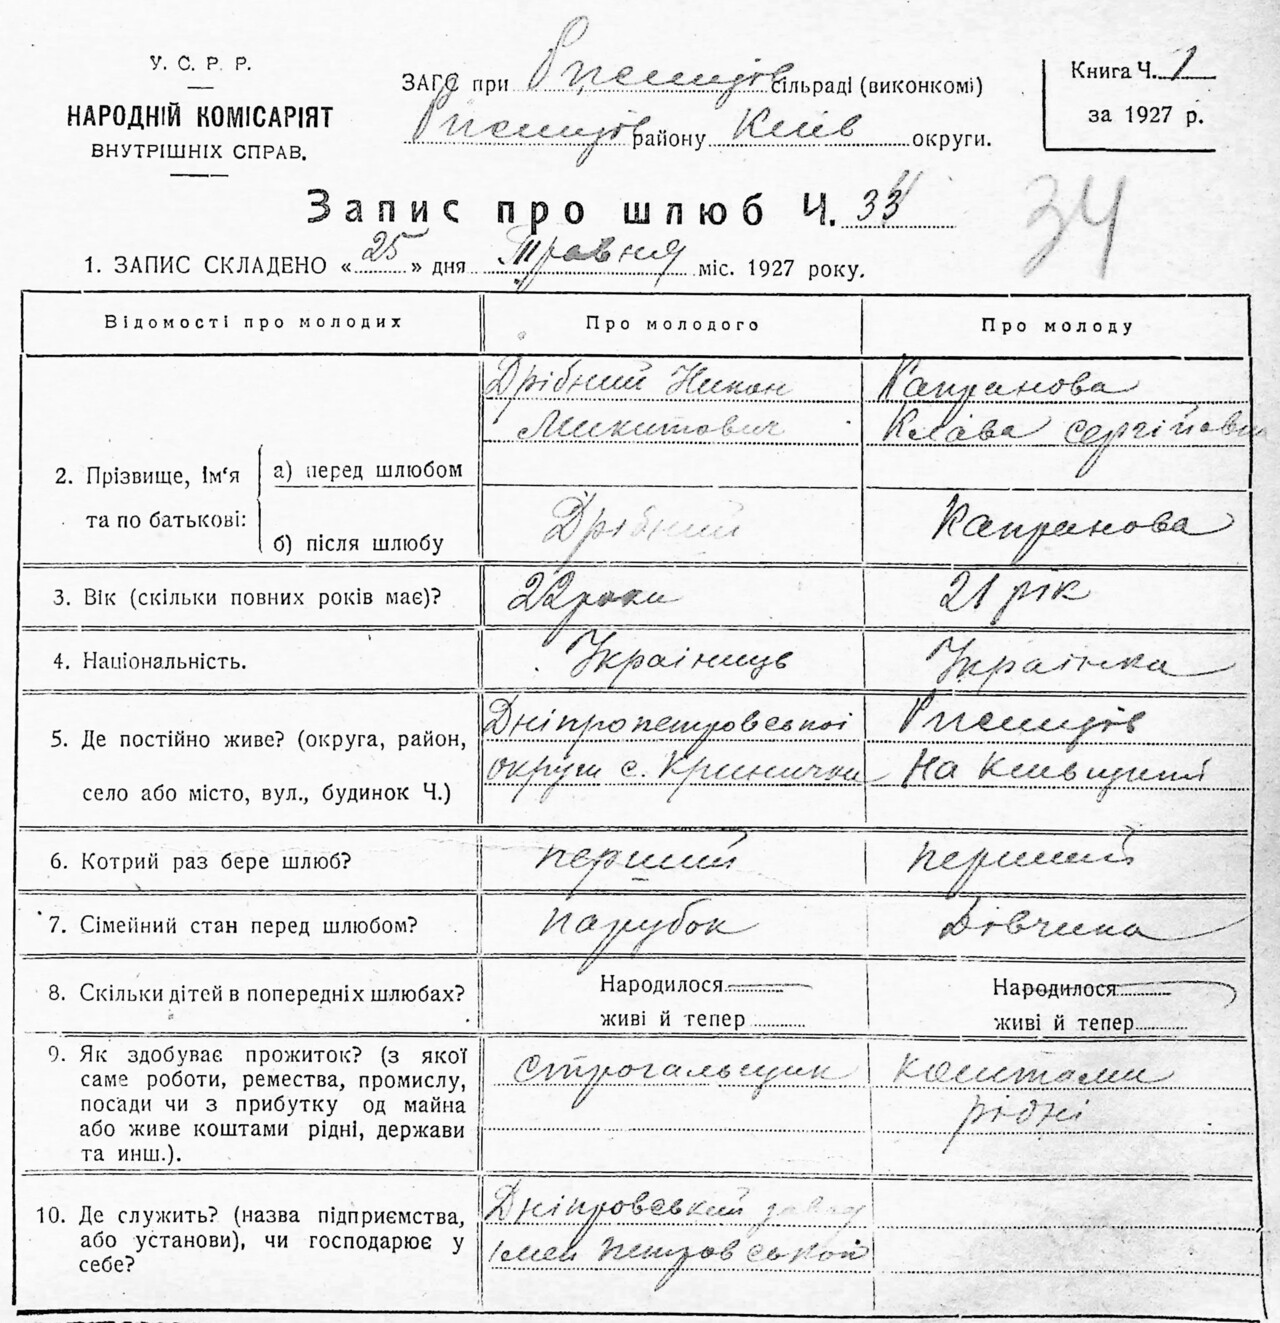 У. С. Р. Р.
НАРОДНІЙ КОМІСАРІЯТ
ВНУТРІШНІХ СПРАВ.
ЗАГС при Ржищів сільраді (виконкомі)
Ржищів району Київ округи.
Книга Ч. 1
за 1927 р.
Запис про шлюб Ч. 34
34
1. ЗАПИС СКЛАДЕНО «25» дня Травня міс. 1927 року.
Відомості про молодих Про молодого Про молоду
2. Прізвище, Ім'я та по батькові:
а) перед шлюбом
Дрібний Никон
Микитович
Капранова
Клава Сергіївна
б) після шлюбу
Дрібний
Капранова
3. Вік (скільки повних років має)?
22 роки
21 рік
4. Національність.
Українець
Українка
5. Де постійно живе? (округа, район,
село або місто, вул., будинок Ч.)
Дніпропетровської
округи с. Кринички
Ржищів
На Київщині
6. Котрий раз бере шлюб?
перший
перший
7. Сімейний стан перед шлюбом?
парубок
Дівчина
8. Скільки дітей в попередніх шлюбах?
Народилося
живі й тепер
Народилося
живі й тепер
9. Як здобуває прожиток? (з якої
саме роботи, ремества, промислу,
посади чи з прибутку од майна
або живе коштами рідні, держави
та инш.).
строгальщик
коштами
рідні
10. Де служить? (назва підприємства,
або установи), чи господарює у
себе?
Дніпровський завод
імен Петровської